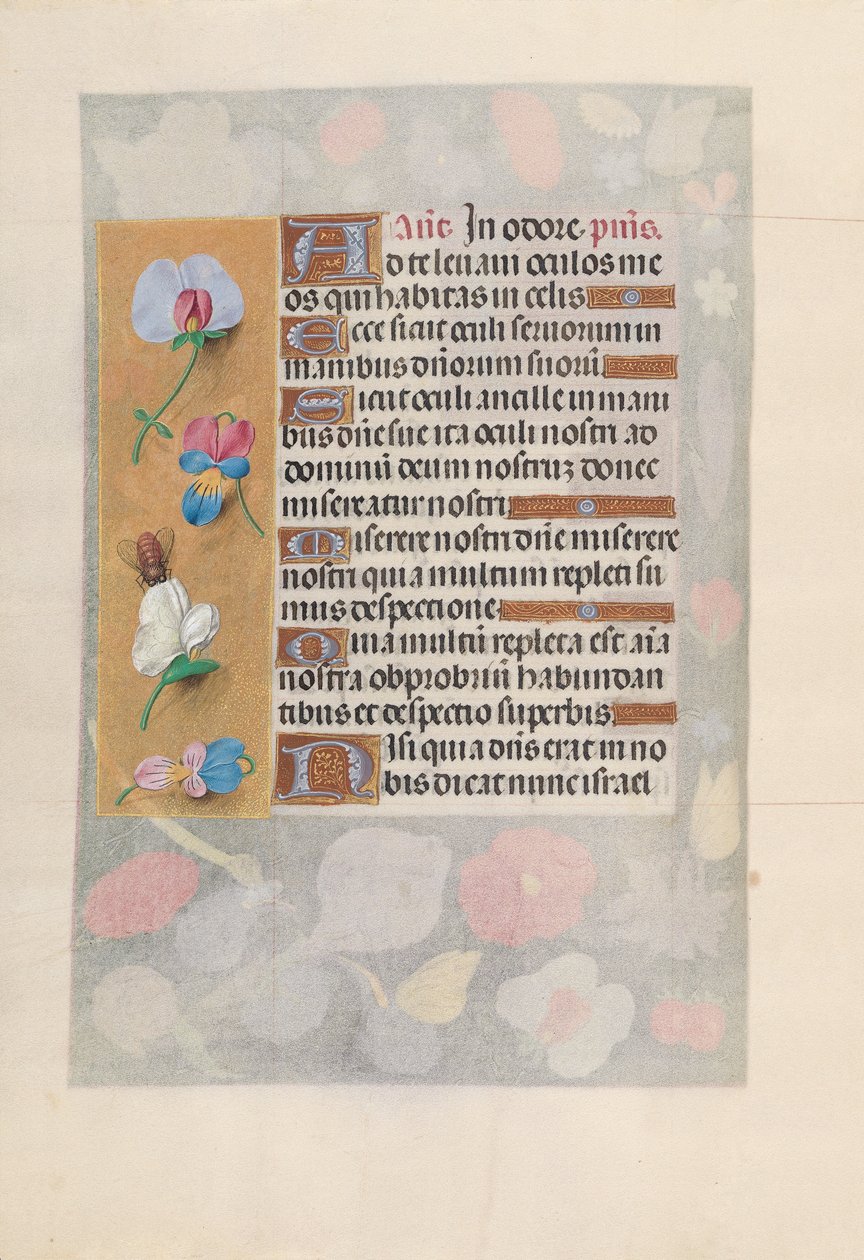 Añt. In odore. psuīs.
Ad te leuaui oculos me
os qui habitas in celis
Ecce sicut oculi seruorum in
manibus dñorum suorū.
Sicut oculi ancille in mani
bus dñe sue ita oculi nostri ad
dominū deum nostruʒ donec
misereatur nostri
Miserere nostri dñe miserere
nostri quia multum repleti su
mus despectione.
Quia multū repleta est aīa
nostra obprobriū habundan
tibus et despectio superbis.
Nisi quia dñs erat in no
bis dicat nunc israel